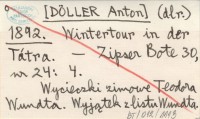 [DÖLLER Anton] (dlr.)
1892. Wintertour in der
Tátra. — Zipser Bote 30,
nr 24: 4.
Wycieczki zimowe Teodora
Wundta. Wyjątek z listu Wundta.